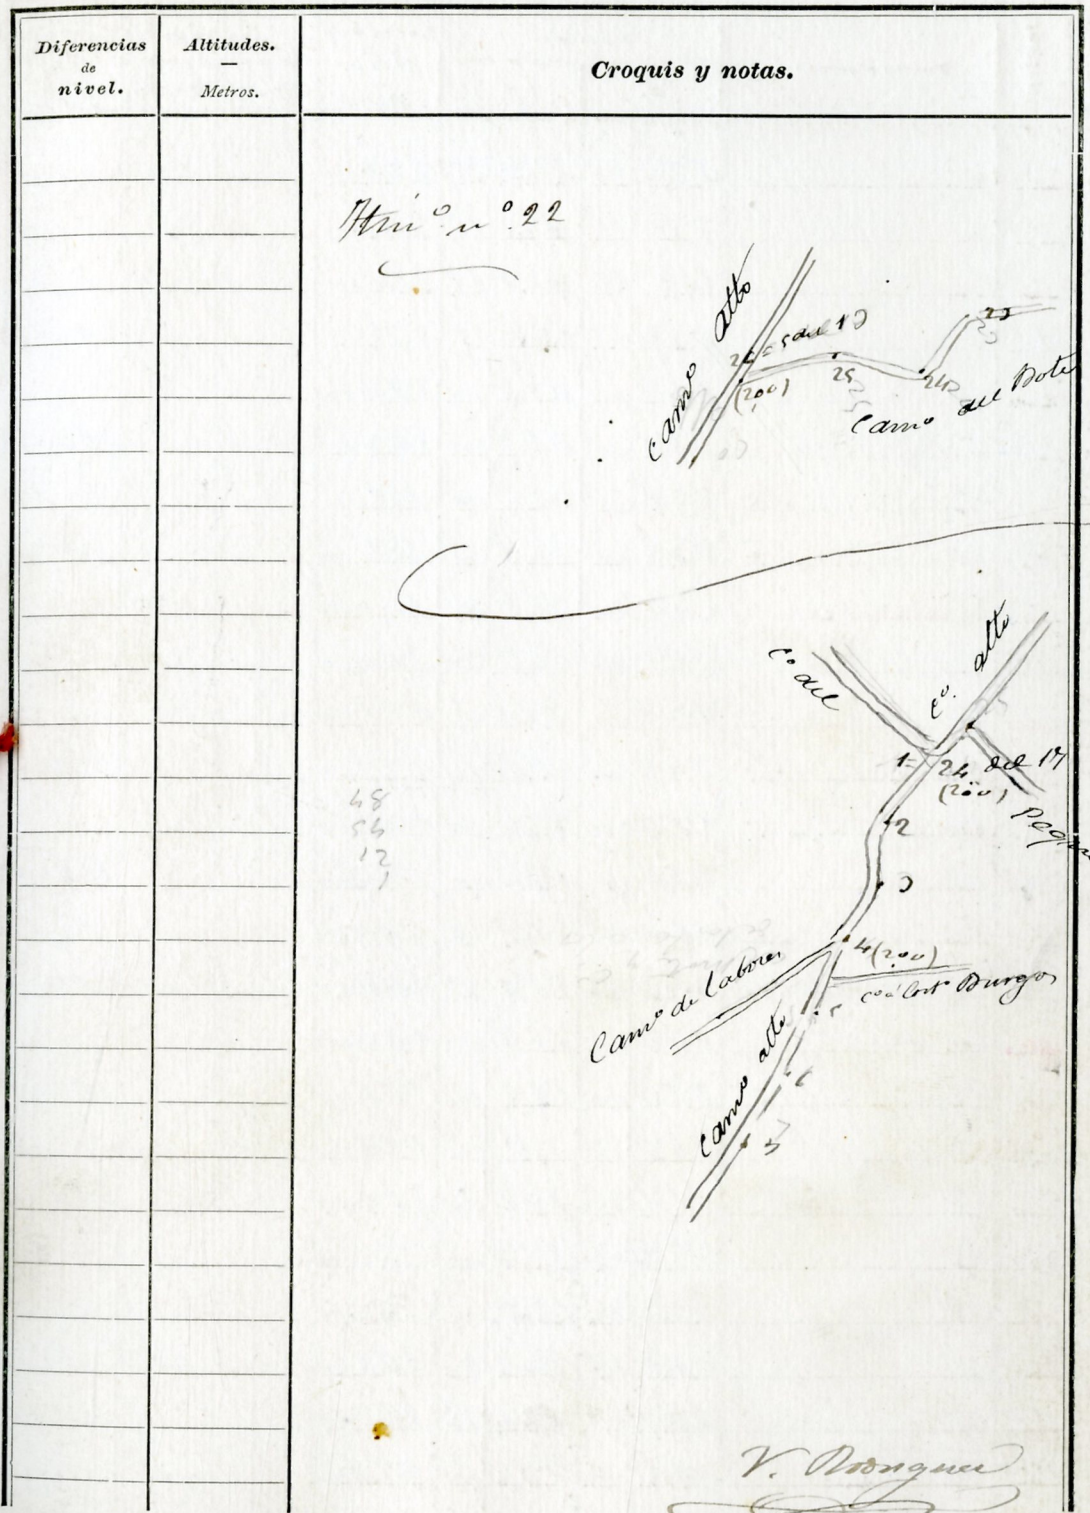 Diferencias
de
nivel.
Altitudes.
Metros.
Croquis y notas.
Itinº nº 22
Camº alto
26 = 5 del 13
(200)
25
24
23
Camº del Bote
Cº del
Cº alto
1 = 24 del 17
(200)
2
3
4 (200)
Camº de labores
Burgos
5
Camº alto
6
7
V. Rodriguez